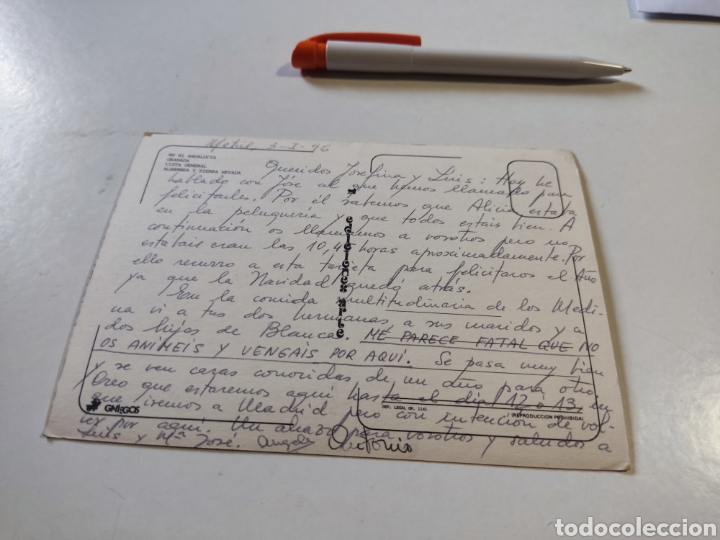 Motril, 2-I-96
NO 51 ANDALUCIA
GRANADA
VISTA GENERAL
ALHAMBRA Y SIERRA NEVADA
Queridos Josefina y Luis: Hoy he
hablado con José al que hemos llamado para
felicitarles. Por él sabemos que Alicia estaba
en la peluquería y que todos estais bien. A
continuación os llamamos a vosotros pero no
estabais eran las 10,45 horas aproximadamente. Por
ello recurro a esta tarjeta para felicitaros el Año
ya que la Navidad quedó atrás.
En la comida multitudinaria de los Medi-
na vi a tus dos hermanas a sus maridos y a
dos hijos de Blanca. ME PARECE FATAL QUE NO
OS ANIMEIS Y VENGAIS POR AQUI. Se pasa muy bien
y se ven caras conocidas de un año para otro.
Creo que estaremos aquí hasta el dia 12 o 13, en
que iremos a Madrid pero con intención de vol-
ver por aquí. Un abrazo para vosotros y saludos a
Luis y Mª José. Angeles Antonio
GALLEGOS
DEP. LEGAL GR.
(REPRODUCCION PROHIBIDA)
todocoleccion